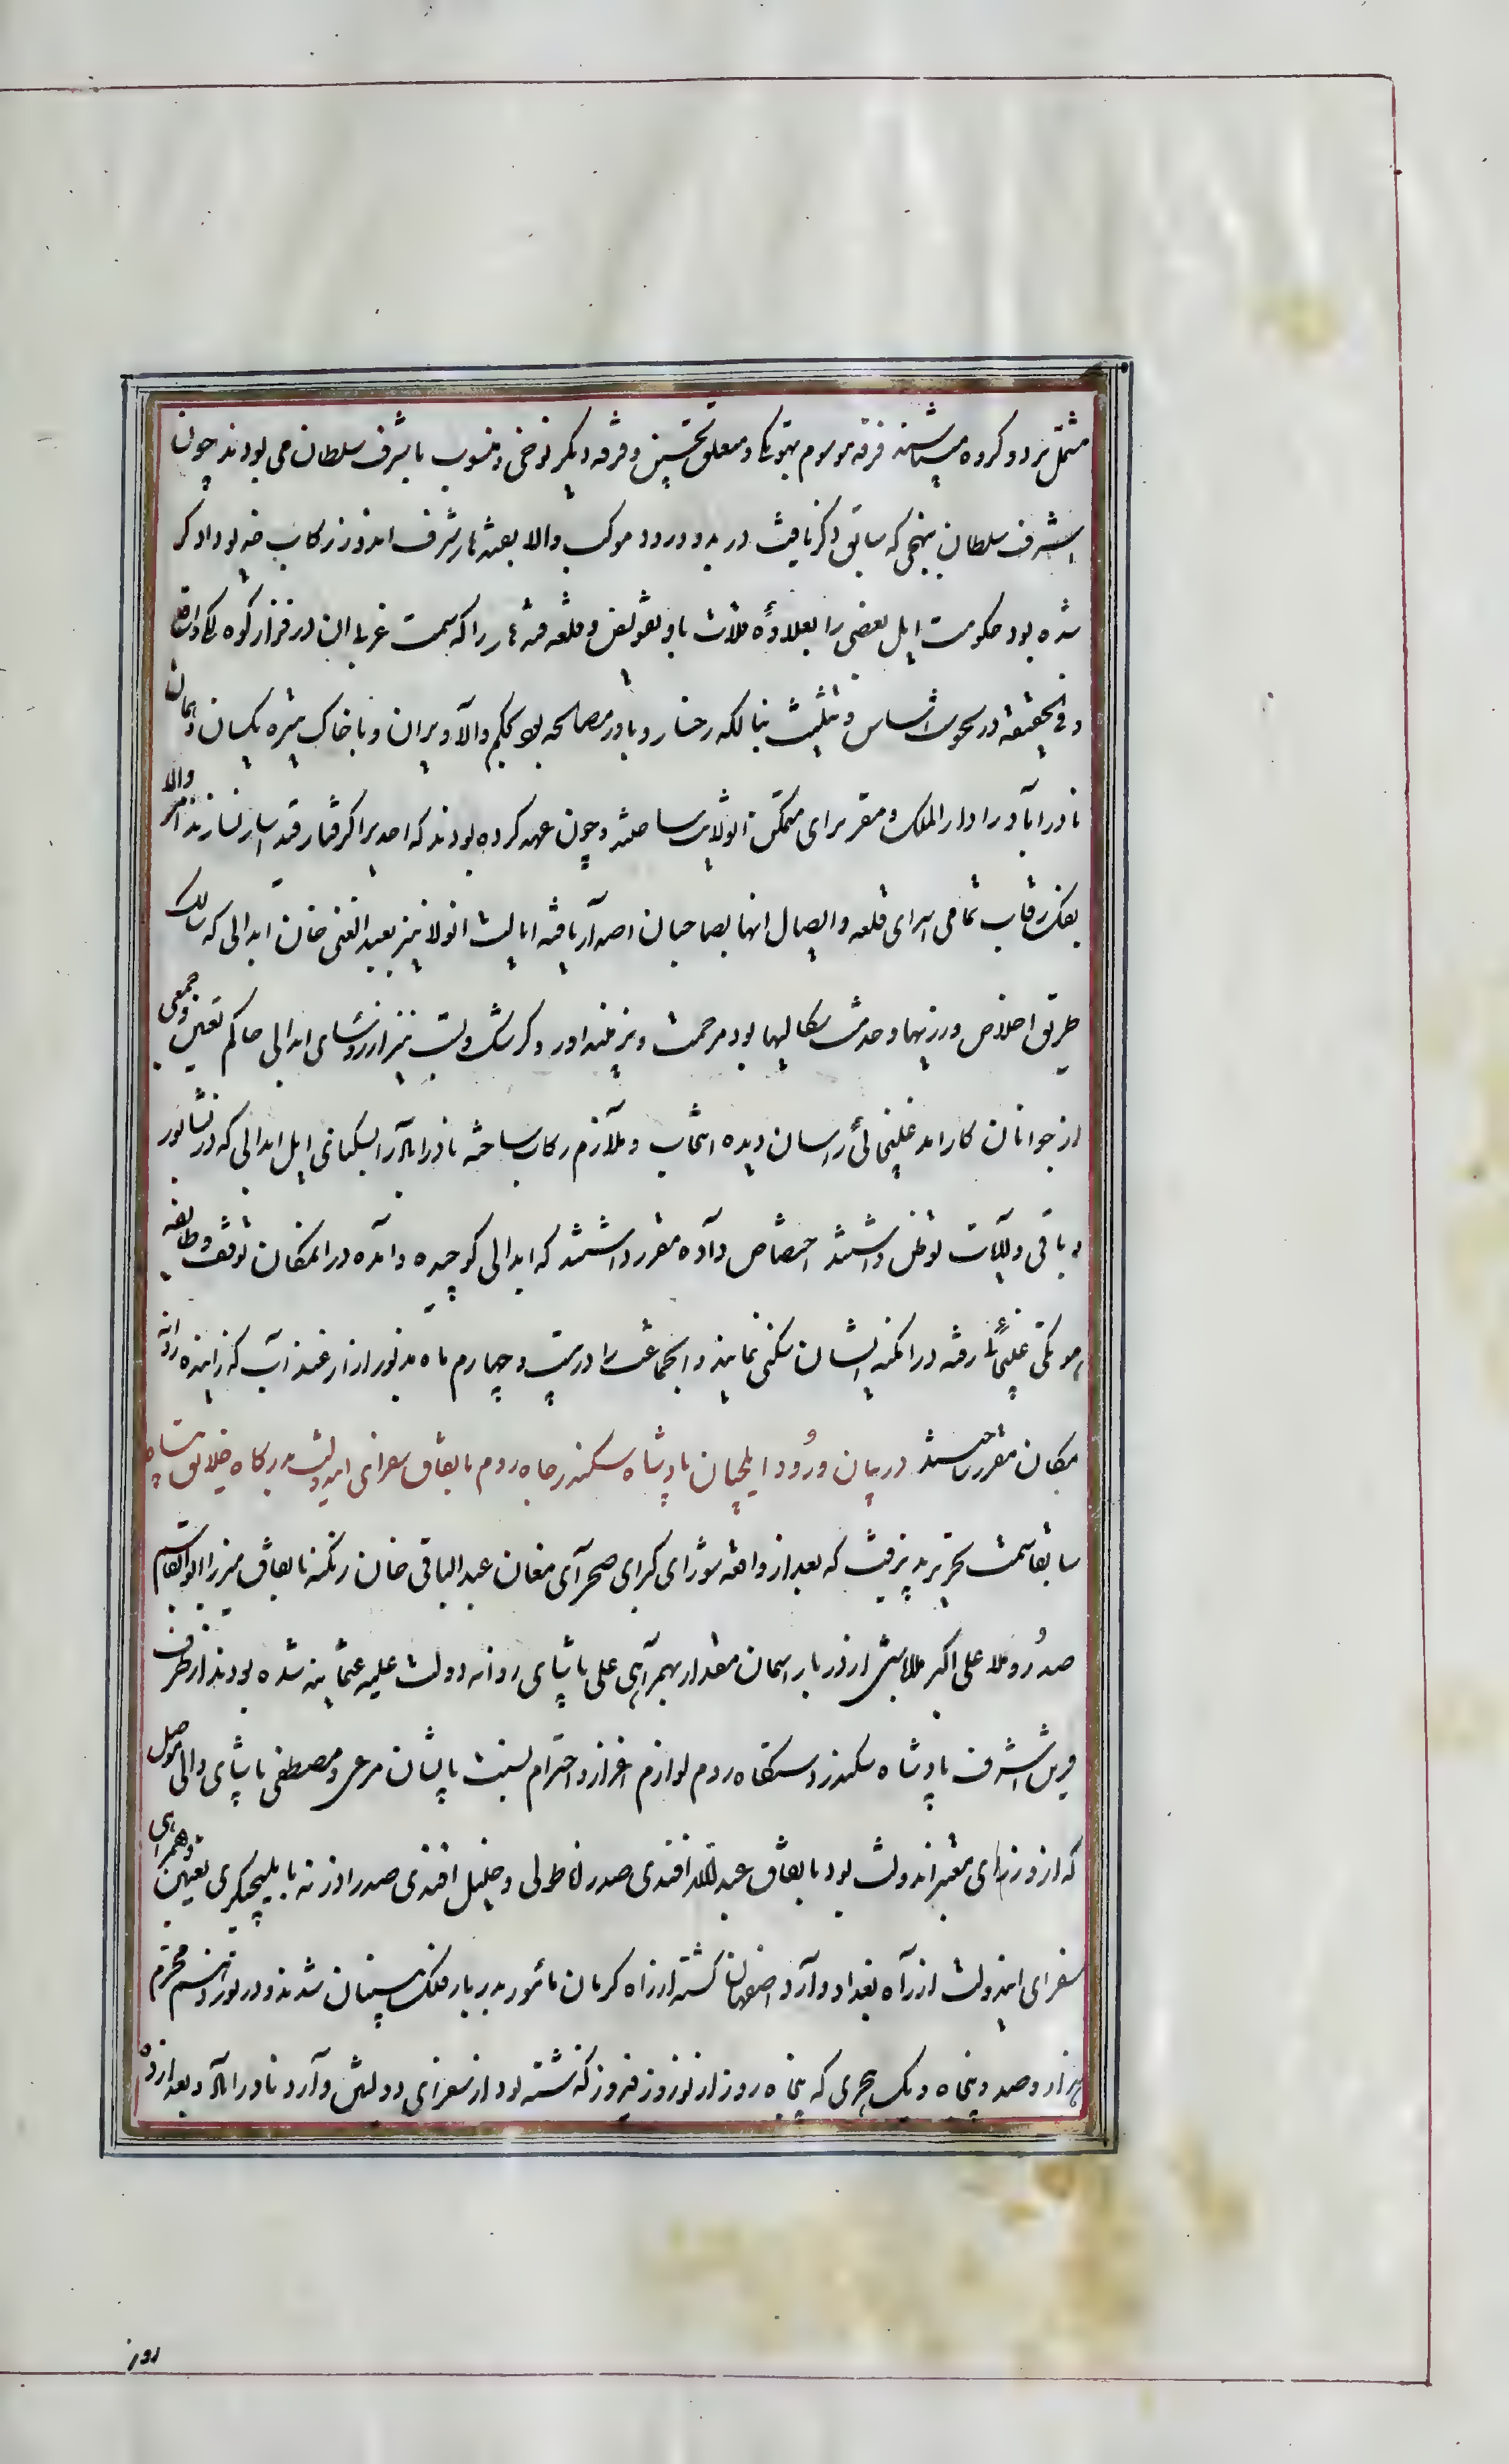 مشتمل بر دو گروه میباشند فرقه موسوم بهوتکی و متعلق بحسین و فرقه دیگر توخی و منسوب باشرف سلطان می بودند چون
اشرف سلطان بنهجی که سابق ذکر یافت در بدو ورود موکب والا بقندهار شرف اندوز رکاب خدیو دادگر
شده بود حکومت ایل بعضی را بعلاوه قلات باو تفویض و قلعه قندهار را که سمت غربی ان در فراز کوه لکی واقع
و فی الحقیقه در بحوست اساس و بنالکه رخسار و با در مصالحه بود بحکم والا ویران و با خاک تیره یکسان و همان
نادراباد را دار الملک و مقر برای متمکن انولایت ساختند و چون عهد کرده بودند که احدیرا گرفتار قید اسار نسازند امر والا
بفک رقاب تمامی اسرای قلعه و ایصال انها بصاحبان اصدار یافته ایالت انولا نیز بعبد الغنی خان ابدالی که سالک
طریق اخلاص ورزیها و خدمت سکالیها بود مرحمت و بزمینداور و کرشک و بست نیز از رؤسای ابدالی حاکم تعیین و جمعی
از جوانان کارامد غلیجائی را سان دیده انتخاب و ملازم رکاب ساخته نادراباد را بسکنای ایل ابدالی که در نشابور
و باقی ولایات توطن داشتند اختصاص داده مقرر داشتند که ابدالی کوچیده و امده در المکان توقف و طایفه
هوتکی غلیجائی رفته در امکنه ایشان سکنی نمایند و انجماعت را در بیست و چهارم ماه مذبور از ارغنداب گذرانیده روانه
مکان مقرر ساختند در بیان ورود ایلچیان پادشاه سکندر جاه روم باتفاق سفرای ایندولت بدرگاه خلایق پناه
سابقا سمت تحریر پذیرفت که بعد از واقعه شورای کبرای صحرای مغان عبد الباقی خان زنگنه باتفاق میرزا ابو القاسم
صدر و ملا علی اکبر ملاباشی از دربار اسمان مقدار بهمراهی علی پاشای روانه دولت علیه عثمانیه شده بودند از طرف
قرین الشرف پادشاه سکندر دستگاه روم لوازم اعزاز و احترام نسبت بایشان مرعی و مصطفی پاشای والی موصل
که از وزرای معتبر اندولت بود باتفاق عبد الله افندی صدر اناطولی و خلیل افندی صدر ادرنه بایلچیگری تعیین و همراهی
سفرای ایندولت از راه بغداد وارد اصفهان گشته از راه کرمان مأمور بدربار فلک بنیان شدند و در نوزدهم محرم
هزار و صد و پنجاه و یک هجری که پنجاه روز از نوروز فیروز گذشته بود از سفرای دولتین وارد نادراباد و بعد از ده
روز